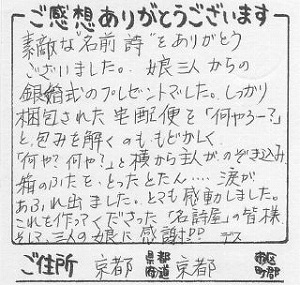 ご感想ありがとうございます
素敵な"名前詩"をありがとう
ございました。娘三人からの
銀婚式のプレゼントでした。しっかり
梱包された宅配便を「何やろー?」
と、包みを解くのももどかしく
「何や?何や?」と横から主人がのぞき込み
箱のふたを、とったとたん‥‥涙が
あふれ出ました。とても感動しました。
これを作ってくださった「名詩屋」の皆様
そして、三人の娘に感謝!!デス
ご住所 京都 都道府県 京都 市区町郡